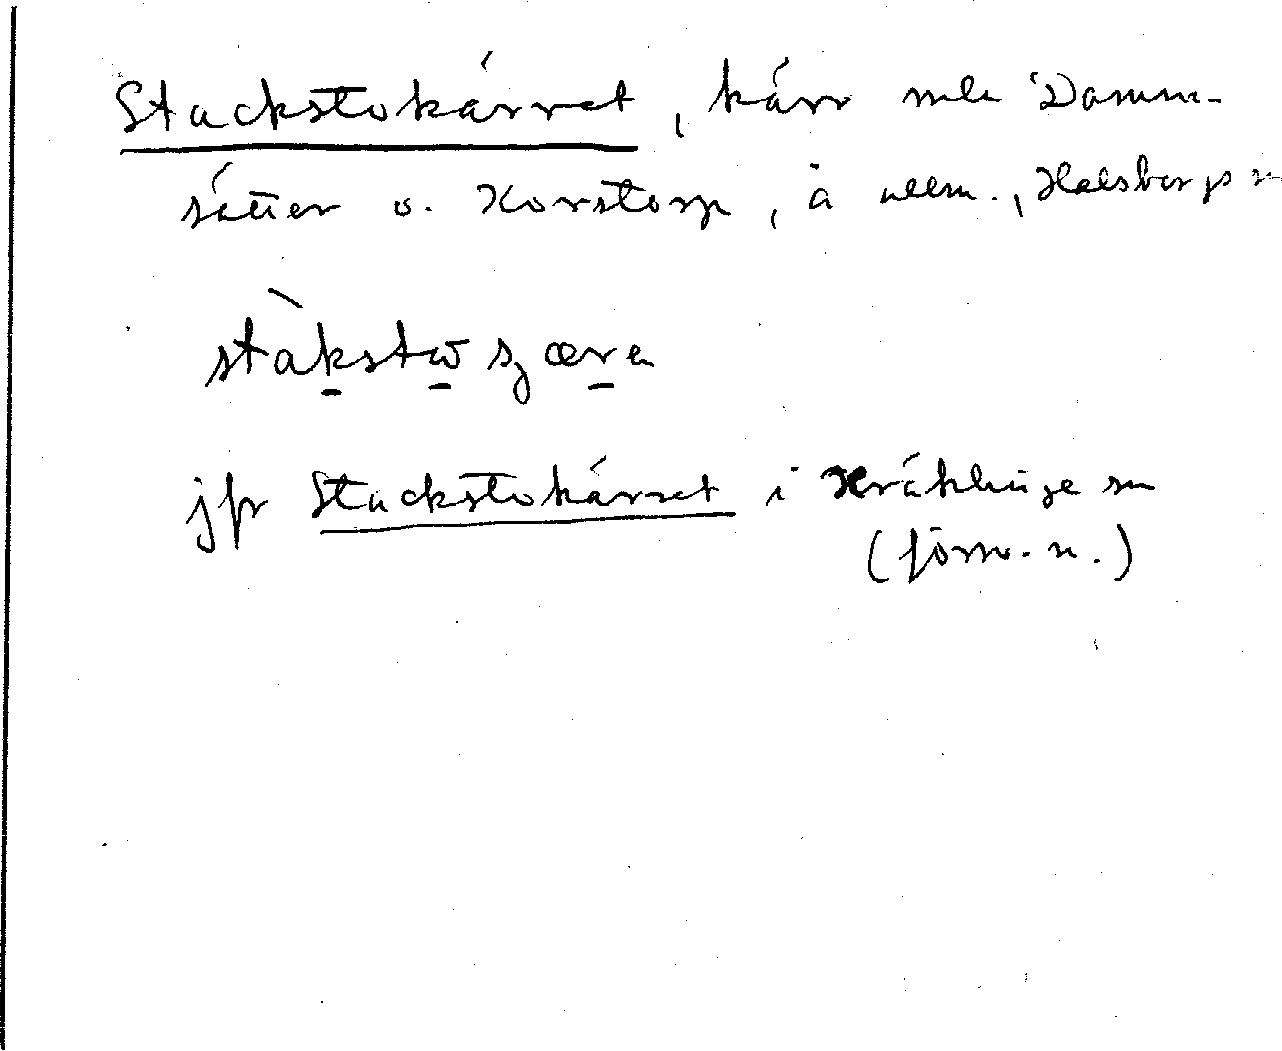 Stackstokärret, kärr mln Damm-
sätter o. Korstorp, å allm., Halsbergs sn
stàkstωszæra
jfr Stackstokärret i Kräklinge sn
(försv. n.)